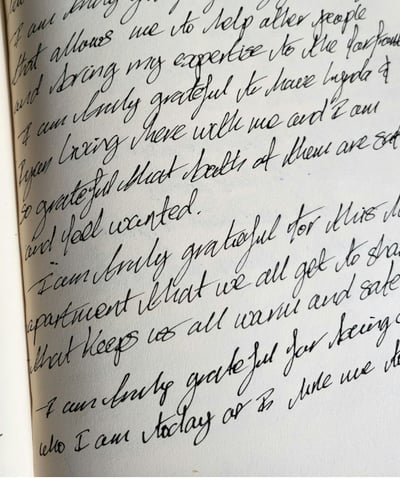 I am truly gra
that allows me to help other people
and bring my expertise to the forefron
I am truly grateful to have Lynda &
living here with me and I am
so grateful that both of them are saf
and feel wanted.
I am truly grateful for this
apartment that we all get to sha
that keeps us all warm and safe
I am truly grateful for being
who I am today as is here me to